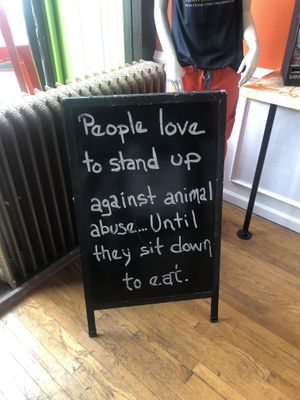 People love
to stand up
against animal
abuse...Until
they sit down
to eat.